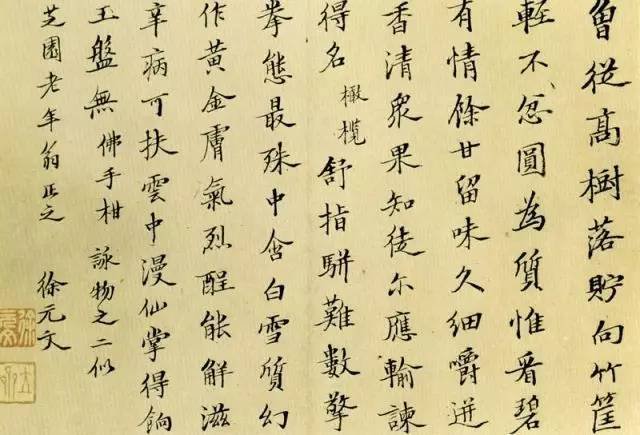 曾從高樹落貯向竹筐
輕不忿圓為質惟看碧
有情餘甘留味久細嚼迸
香清眾果知徒尔應輸諫
得名 橄欖 舒指駢難數擎
拳態最殊中含白雪質幻
作黃金膚氣烈酲能解滋
辛病可扶雲中漫仙掌得餉
玉盤無 佛手柑 詠物之二似
芝園老年翁正之 徐元文